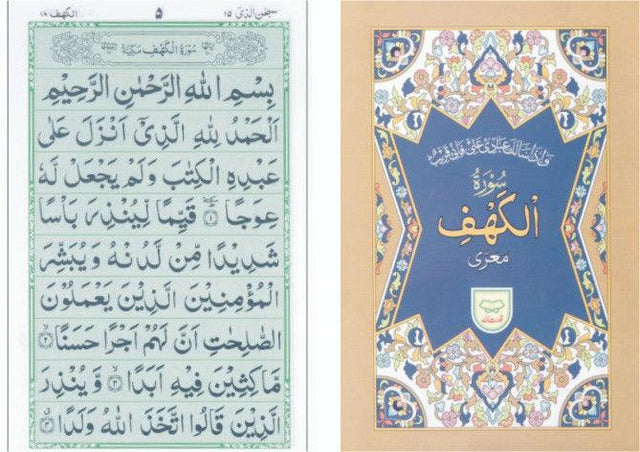 سبحٰن الذی ۱۵
۵
الکهف ۱۸
سُوْرَةُ الْكَهْفِ مَكِّيَّةٌ
بِسْمِ اللهِ الرَّحْمٰنِ الرَّحِيْمِ
اَلْحَمْدُ لِلّٰهِ الَّذِيْٓ اَنْزَلَ عَلٰى
عَبْدِهِ الْكِتٰبَ وَلَمْ يَجْعَلْ لَّهٗ
عِوَجًا ۱ قَيِّمًا لِّيُنْذِرَ بَاْسًا
شَدِيْدًا مِّنْ لَّدُنْهُ وَيُبَشِّرَ
الْمُؤْمِنِيْنَ الَّذِيْنَ يَعْمَلُوْنَ
الصّٰلِحٰتِ اَنَّ لَهُمْ اَجْرًا حَسَنًا ۲
مَّاكِثِيْنَ فِيْهِ اَبَدًا ۳ وَّيُنْذِرَ
الَّذِيْنَ قَالُوا اتَّخَذَ اللهُ وَلَدًا ۴
سُوْرَةُ
الْكَهْفِ
معرّى